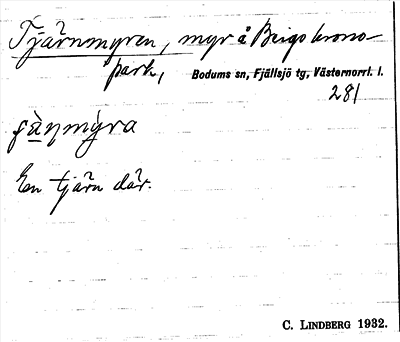 Tjärnmyren, myr å Beigo krono-
park, Bodums sn, Fjällsjö tg, Västernorrl. l.
281
En tjärn där.
C. LINDBERG 1932.